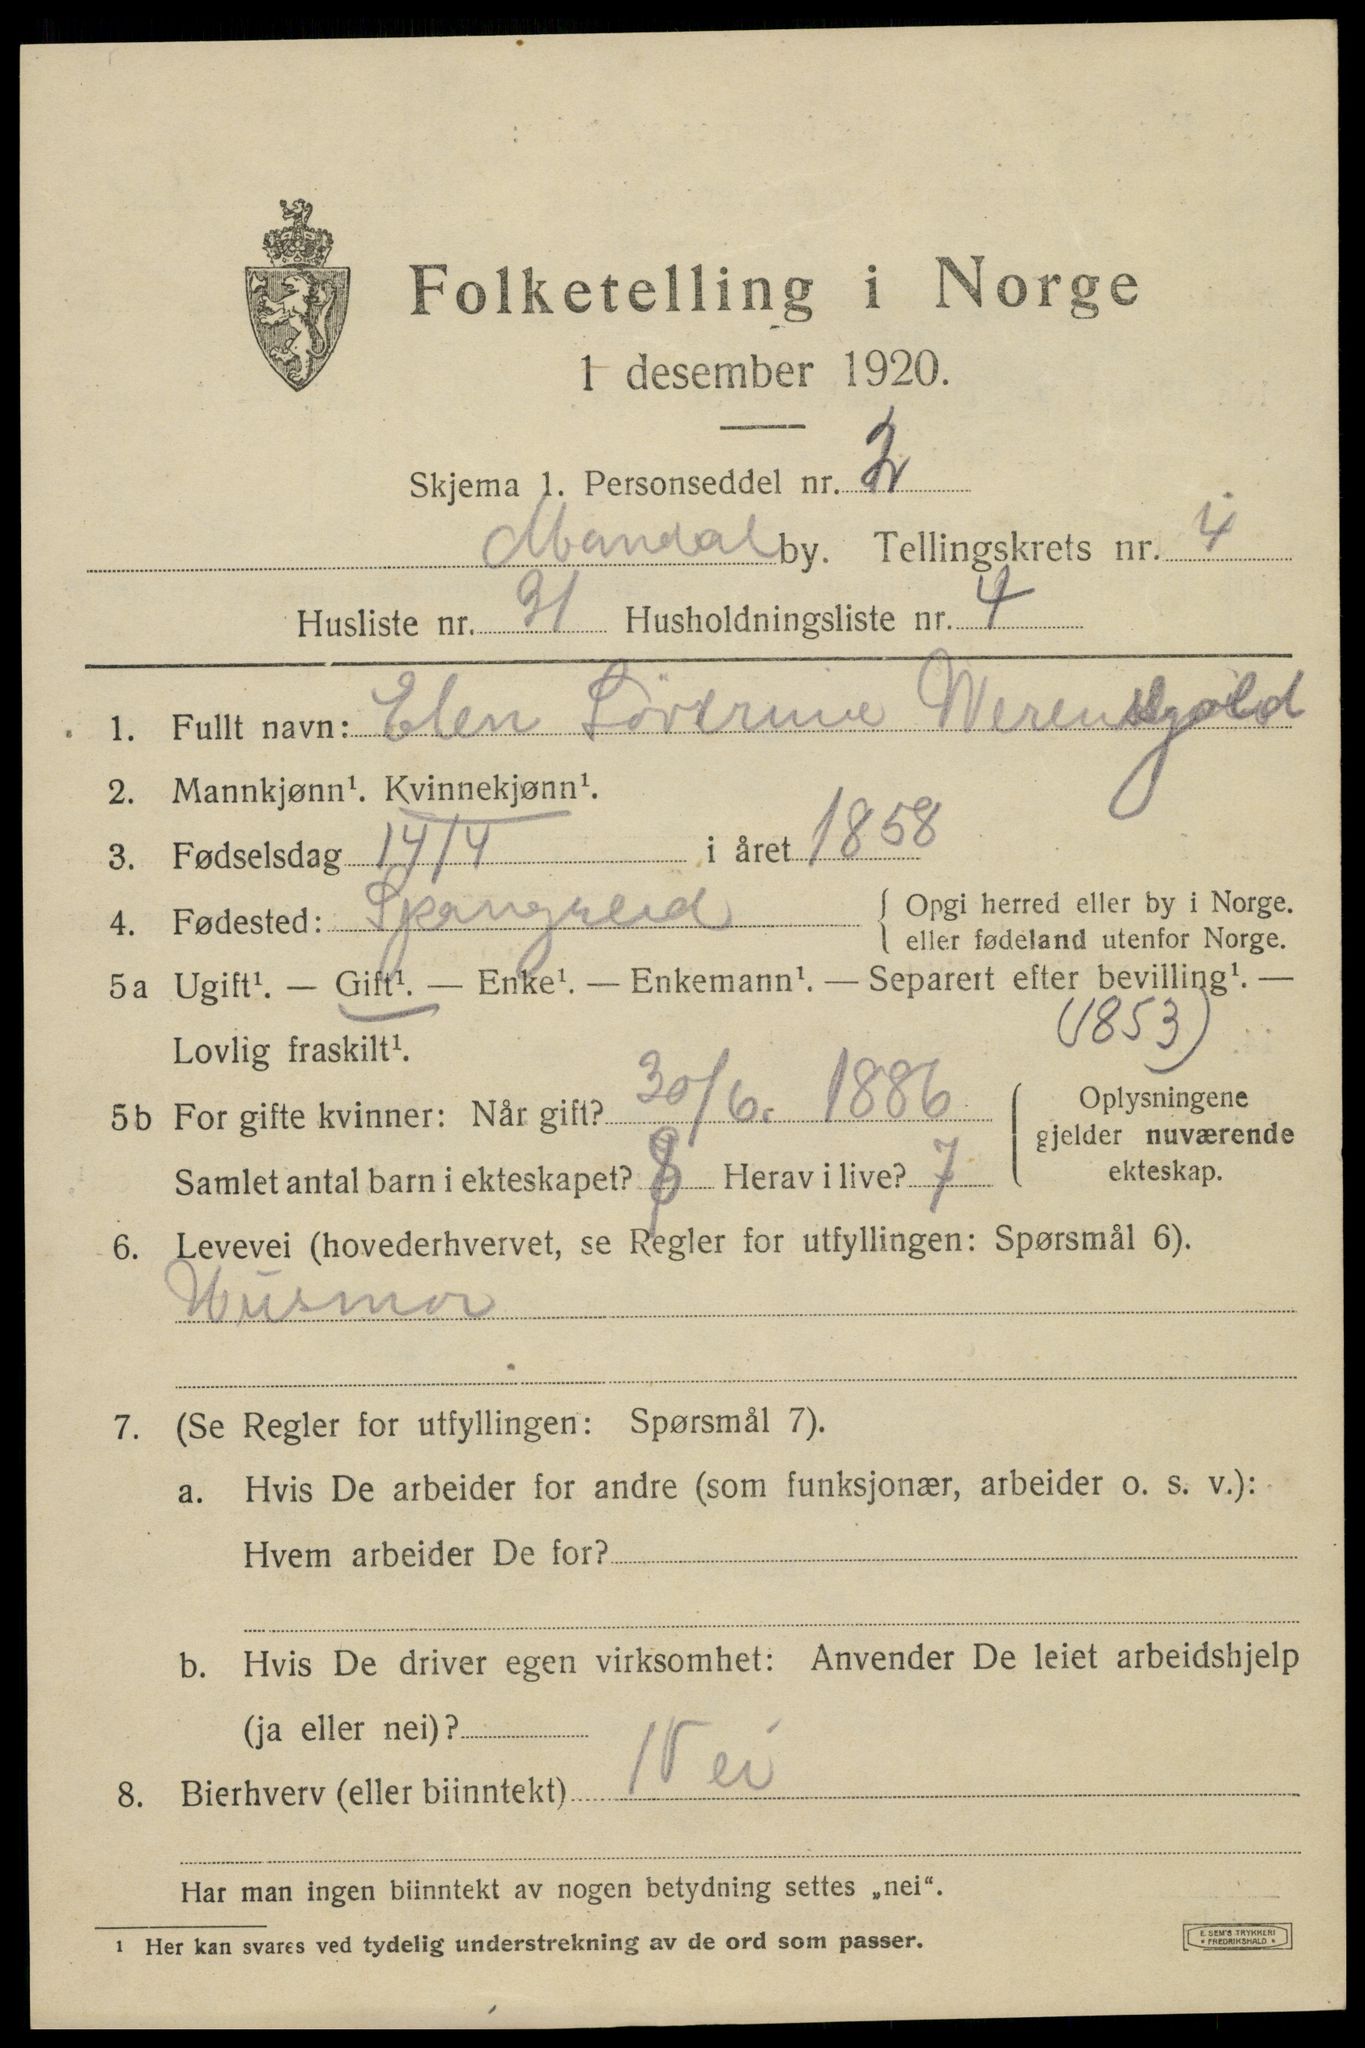 Folketelling i Norge
1 desember 1920.
Skjema 1. Personseddel nr. 2
Mandal by. Tellingskrets nr. 4
Husliste nr. 31 Husholdningsliste nr. 4
1. Fullt navn: Elen Werenskjold
2. Mannkjønn¹. Kvinnekjønn¹.
3. Fødselsdag 14/4 i året 1858
4. Fødested: Spangereid { Opgi herred eller by i Norge.
eller fødeland utenfor Norge.
5a Ugift¹. — Gift¹. — Enke¹. — Enkemann¹. — Separert efter bevilling¹. —
Lovlig fraskilt¹. (1853)
5b For gifte kvinner: Når gift? 30/6. 1886 { Oplysningene
gjelder nuværende
ekteskap.
Samlet antal barn i ekteskapet? 8 Herav i live? 7
6. Levevei (hovederhvervet, se Regler for utfyllingen: Spørsmål 6).
Husmor
7. (Se Regler for utfyllingen: Spørsmål 7).
a. Hvis De arbeider for andre (som funksjonær, arbeider o. s. v.):
Hvem arbeider De for?
b. Hvis De driver egen virksomhet: Anvender De leiet arbeidshjelp
(ja eller nei)?
8. Bierhverv (eller biinntekt) Nei
Har man ingen biinntekt av nogen betydning settes „nei“.
¹ Her kan svares ved tydelig understrekning av de ord som passer.
E. SEM'S TRYKKERI
* FREDRIKSHALD *